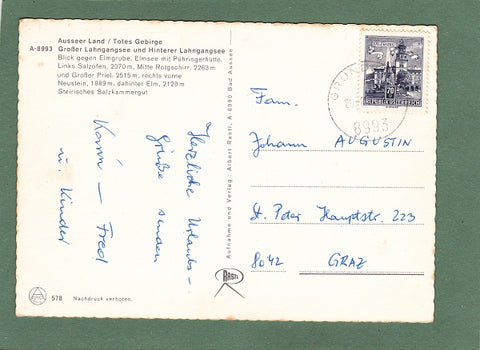 Ausseer Land / Totes Gebirge
A-8993 Großer Lahngangsee und Hinterer Lahngangsee
Blick gegen Elmgrube, Elmsee mit Pühringerhütte.
Links Salzofen, 2070 m, Mitte Rotgschirr, 2263 m
und Großer Priel, 2515 m, rechts vorne
Neustein, 1889 m, dahinter Elm, 2128 m
Steirisches Salzkammergut
Herzliche Urlaubs-
grüße senden
Karin - Fred
u. Kinder
578 Nachdruck verboten.
Aufnahme und Verlag: Albert Rastl, A-8990 Bad Aussee
RASTL
70
REPUBLIK ÖSTERREICH
8993
Fam.
Johann AUGUSTIN
St. Peter Hauptstr. 223
8042 GRAZ